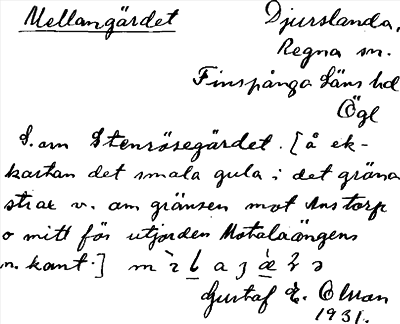 Mellangärdet
Djurslanda,
Regna sn.
Finspånga läns hd
Ögl
S. om Stenrösegärdet. [å ek-
kartan det smala gula i det gröna
strax v. om gränsen mot Anstorp
o mitt för utjorden Motalaängens
n. kant.]
Gustaf E. Olsson
1931.